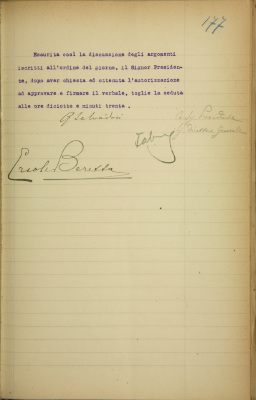 177
Esaurita così la discussione degli argomenti
iscritti all'ordine del giorno, il Signor Presiden-
te, dopo aver chiesta ed ottenuta l'autorizzazione
ad approvare e firmare il verbale, toglie la seduta
alle ore diciotto e minuti trenta.
G Salvadori
Ercole Beretta